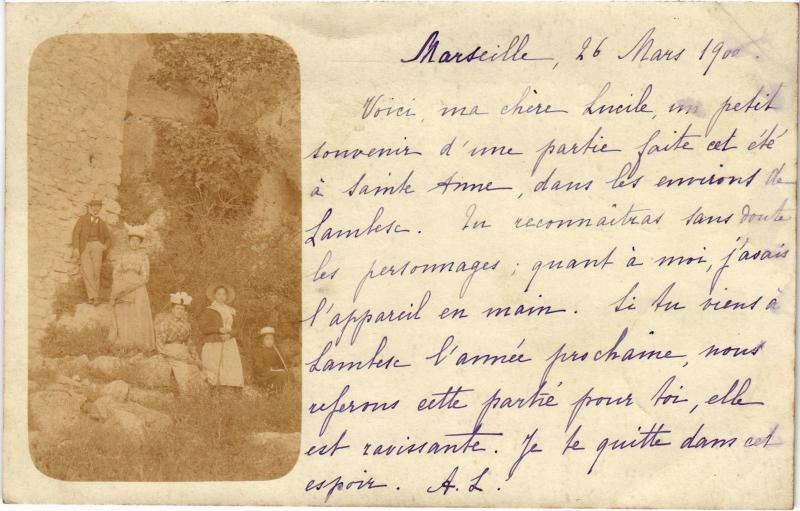 Marseille, 26 Mars 1900.
Voici, ma chère Lucile, un petit
souvenir d'une partie faite cet été
à Sainte Anne, dans les environs de
Lambesc. Tu reconnaîtras sans doute
les personnages ; quant à moi, j'avais
l'appareil en main. Si tu viens à
Lambesc l'année prochaine, nous
referons cette partie pour toi, elle
est ravissante. Je te quitte dans cet
espoir. A.L.